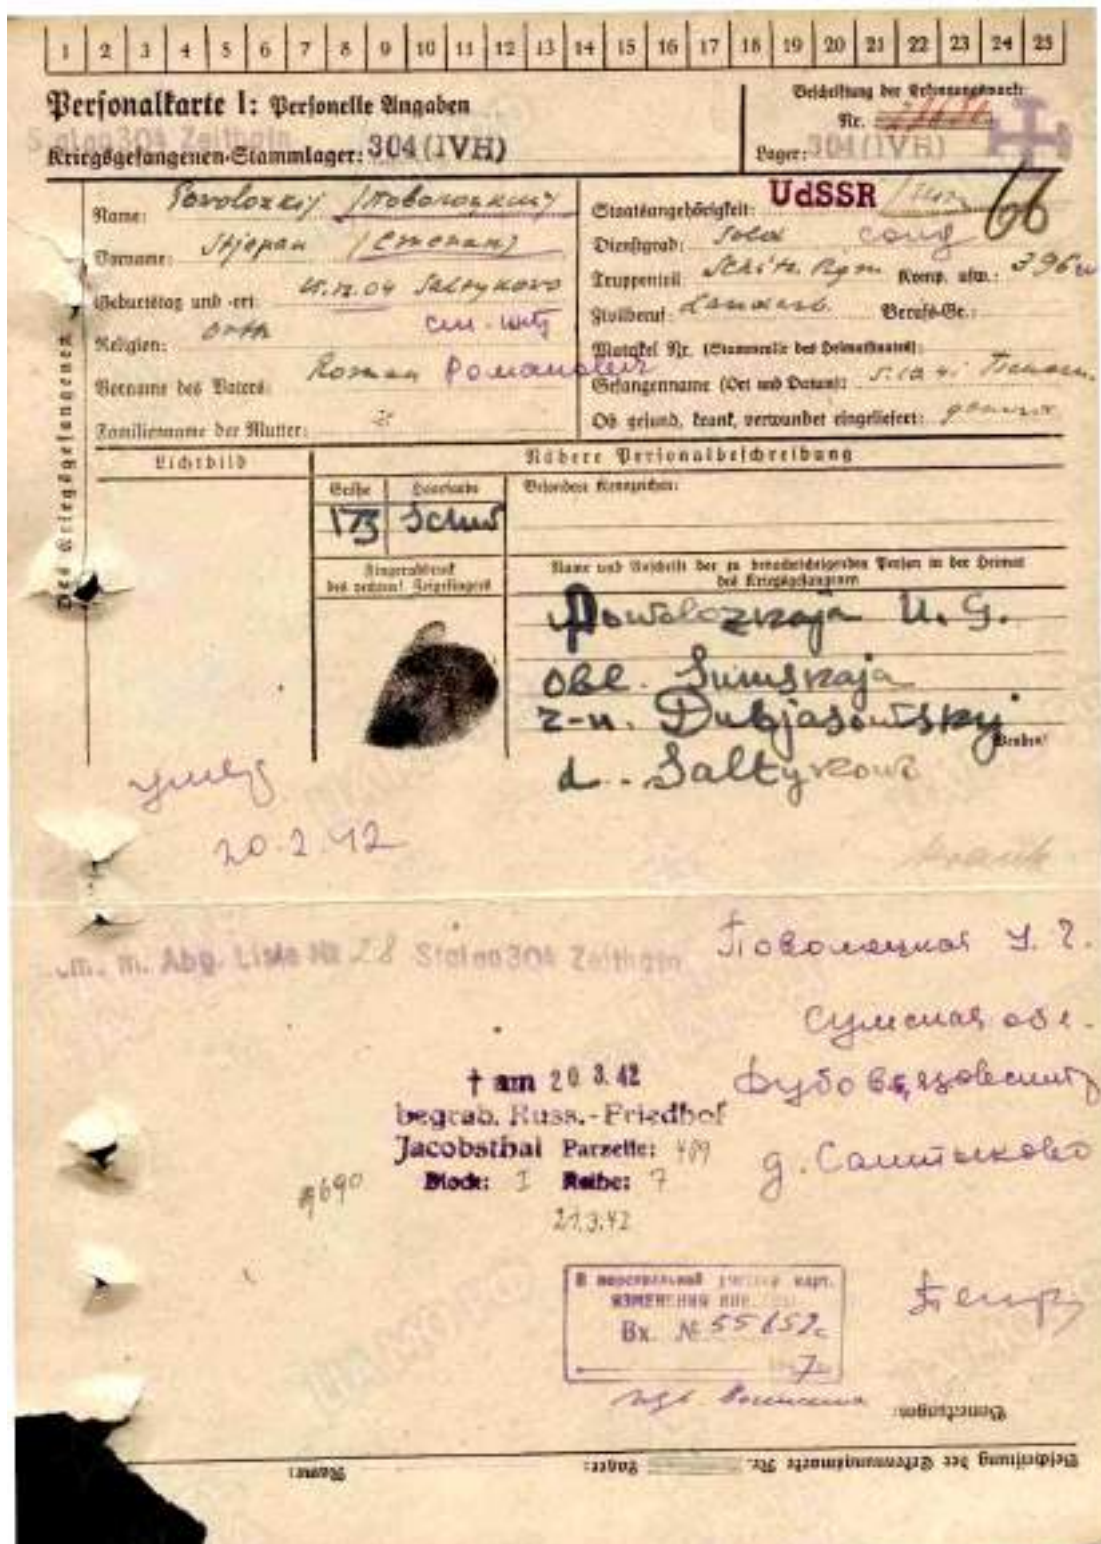 1 2 3 4 5 6 7 8 9 10 11 12 13 14 15 16 17 18 19 20 21 22 23 24 25
Personalkarte I: Personelle Angaben
Beschriftung der Erkennungsmarke
Nr.
Stalag 304 Zeithain
Kriegsgefangenen-Stammlager: 304 (IVH)
Lager: 304 (IVH)
Des Kriegsgefangenen
Name: Powolozkij /Поволоцкий/
Vorname: Stjepan /Степан/
Geburtstag und -ort: 12.04 Saltykowo
Religion: Orth
Vorname des Vaters: Roman Романович
Familienname der Mutter:
Staatsangehörigkeit: UdSSR
66
Dienstgrad: Sold солд
Truppenteil: Schütz. Rgm Komp. usw.: 396
Zivilberuf: Landarb. Berufs-Gr.:
Matrikel Nr. (Stammrolle des Heimatstaates):
Gefangennahme (Ort und Datum): 5.10.41
Ob gesund, krank, verwundet eingeliefert: gesund
Lichtbild
Nähere Personalbeschreibung
Größe Haarfarbe
173 Schw
Besondere Kennzeichen:
Fingerabdruck
des rechten! Zeigefingers
Name und Anschrift der zu benachrichtigenden Person in der Heimat
des Kriegsgefangenen
Powolozkaja U. G.
obl. Sumskaja
z-n. Dubjasowskij
d. Saltykowo
Wenden!
умер
20.2.42
krank
m. Abg. Liste Nr 28 Stalag 304 Zeithain
Поволоцкая У. Г.
Сумская обл.
† am 20 3.42
begrab. Russ.-Friedhof
Jacobsthal Parzelle: 489
Block: I Reihe: 7
д. Салтыково
9690
21.3.42
В персональной учетной карт.
ИЗМЕНЕНИЯ
Вх. №
7
Bemerkungen:
Name:
Lager:
Beschriftung der Erkennungsmarke Nr.